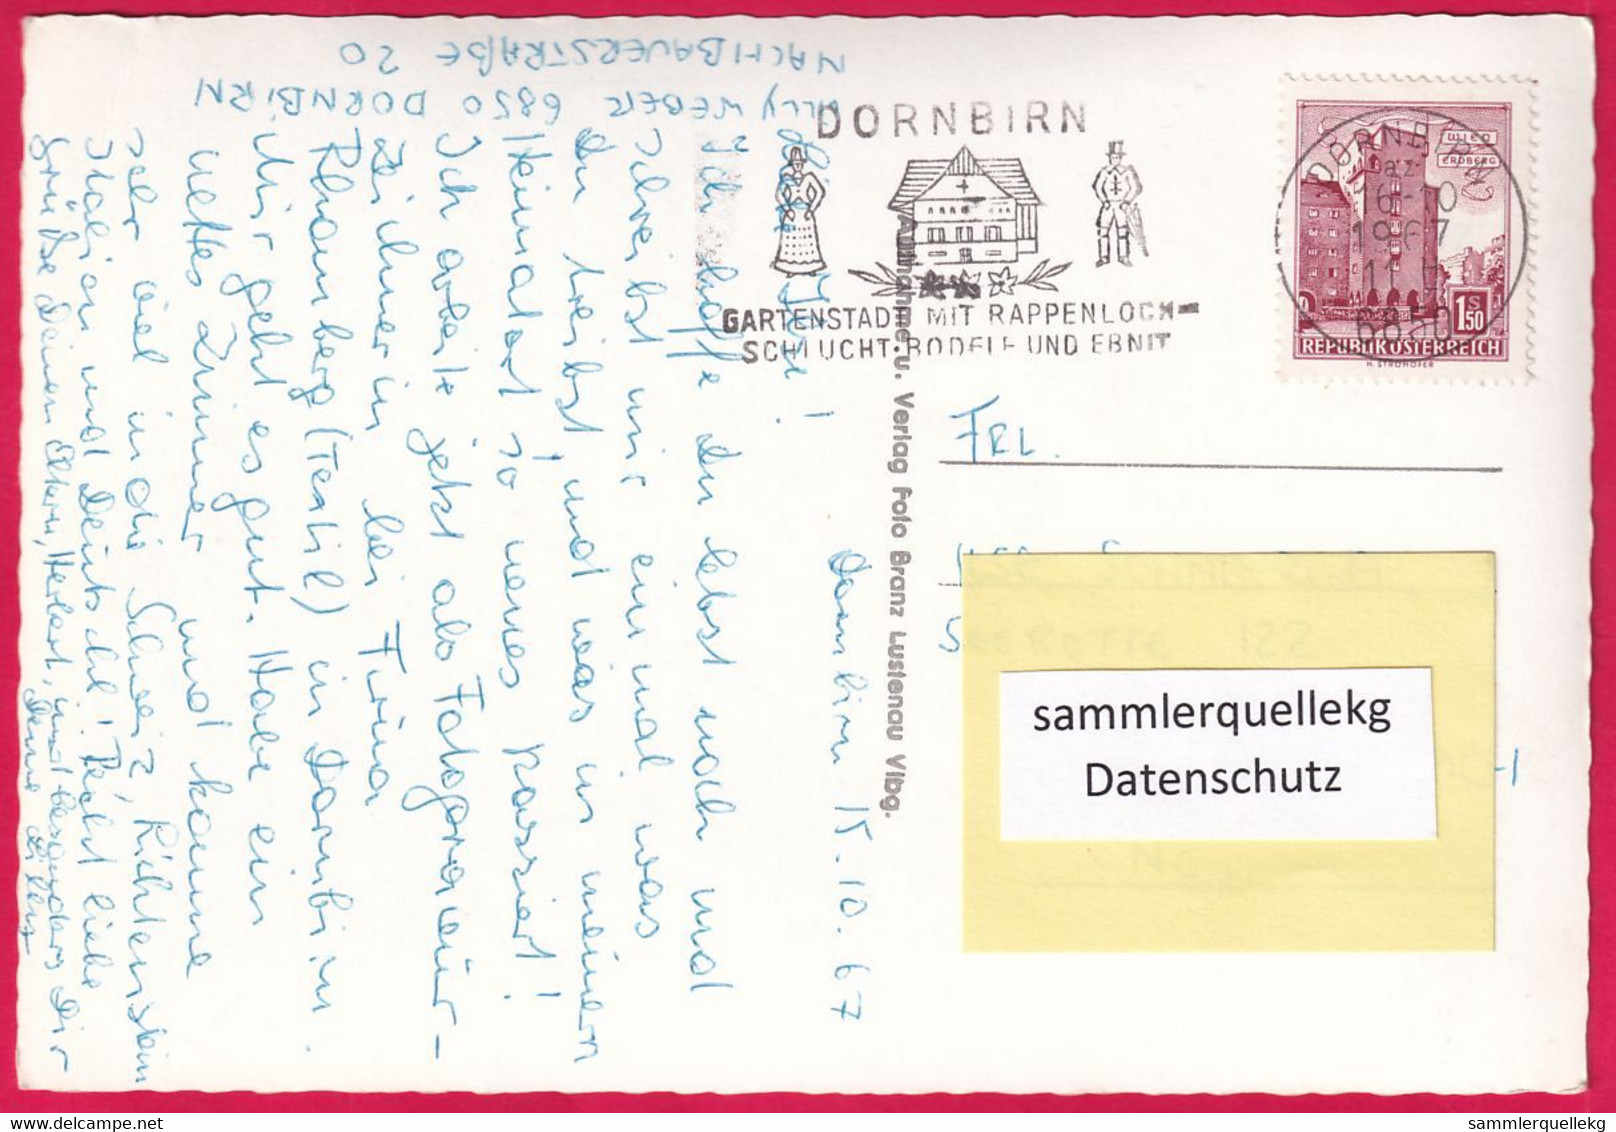 DORNBIRN
GARTENSTADT MIT RAPPENLOCH-
SCHLUCHT·BODELE UND EBNIT
DORNBIRN
16-10
1967
6850
WIEN
ERDBERG
1S
50
REPUBLIK ÖSTERREICH
H. STROHOFER
FRL.
sammlerquellekg
Datenschutz
Aufnahme u. Verlag Foto Branz Lustenau Vlbg.
WEBER 6850 DORNBIRN
NACHBAUERSTRAßE 20
Dornbirn 15.10.67
Liebe Ilse!
Ich hoffe du lebst noch und
schreibst mir einmal was
du treibst, und was in meinem
Heimatort so neues passiert!
Ich arbeite jetzt als Fotograveur-
Zeichnerin bei Firma
Rhomberg (Textil) in Dornbirn.
Mir geht es gut. Habe ein
nettes Zimmer und komme
sehr viel in die Schweiz, Lichtenstein
Italien und Deutschl! Recht liebe
Grüße Deinen Eltern, Herbert, und besonders Dir
Deine
sammlerquellekg